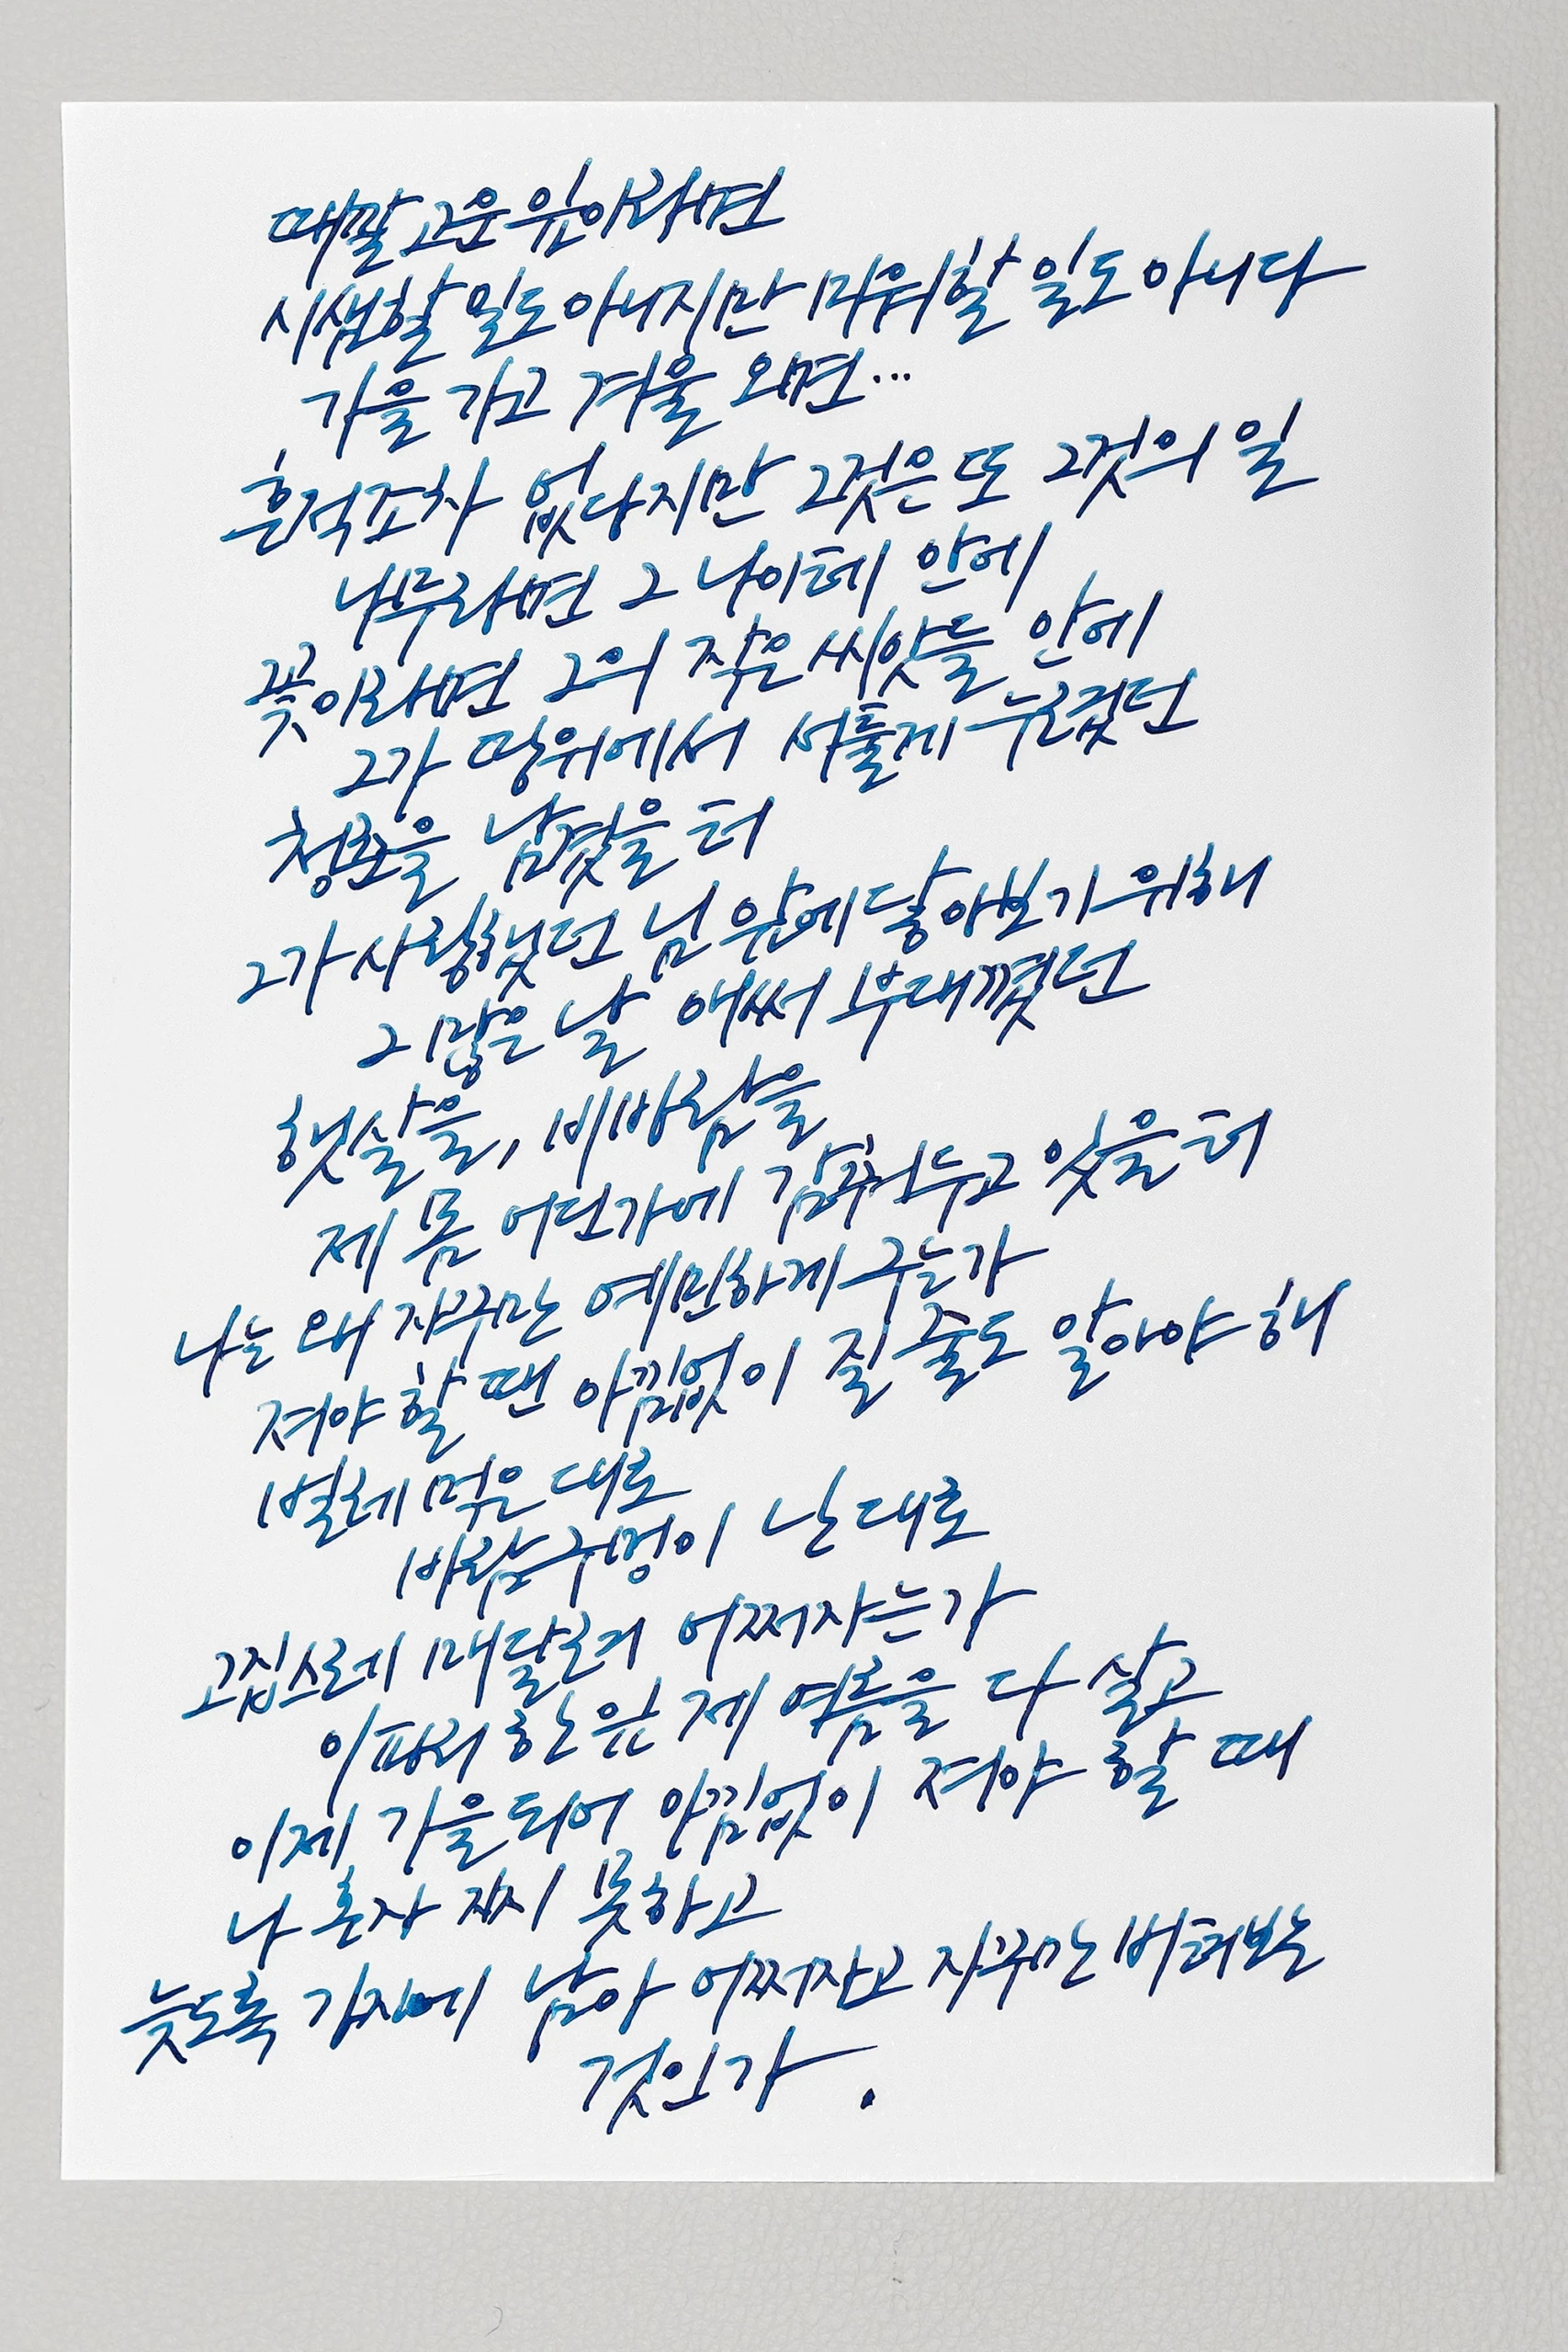 때깔 고운 잎이라면
시샘할 일도 아니지만 미워할 일도 아니다
가을 가고 겨울 오면...
흔적조차 없다지만 그것은 또 그것의 일
나무라면 그 나이테 안에
꽃이라면 그의 작은 씨앗들 안에
그가 땅위에서 서툴게 누렸던
청춘을 남겼을 터
그가 사랑했던 님 앞에 닿아보기 위해
그 많은 날 애써 부대꼈던
햇살을, 비바람을
제 몸 어딘가에 감추어두고 있을 터
나는 왜 자꾸만 예민하게 구는가
져야 할 땐 아낌없이 질 줄도 알아야 해
벌레 먹은 대로
바람구멍이 난 대로
고집스레 매달려 어쩌자는가
이파리 한 잎 제 여름을 다 살고
이제 가을되어 아낌없이 져야 할 때
나 혼자 지지 못하고
늦도록 가지에 남아 어쩌자고 자꾸만 버텨보는
것인가.